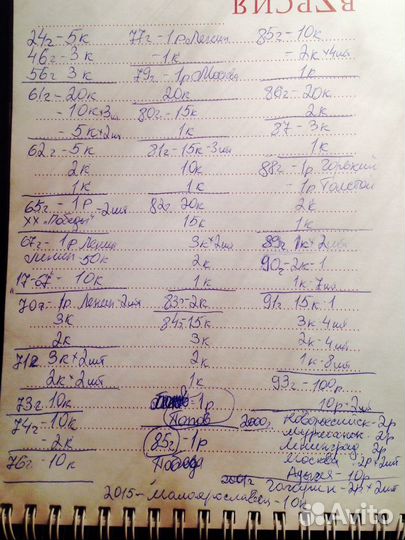 ВЕРСИЯ
24г - 5к
46г - 3к
56г 3к
61г - 20к
- 10к × 3шт
- 5к × 2шт
62г - 5к
2к
1к
65г. - 1р - 2шт
XX "Победы"
67г - 1р Ленин
Ленин - 50к
17-67 - 10к
70г - 1р. Ленин - 2шт
3к
2к
71г 3к × 2шт
2к × 2шт
73г 10к
74г - 10к
- 2к
76г - 10к
77г - 1р Ленин
- 1к
79г. - 1р Москва
20к
80г - 15к
1к
81г - 15к - 3шт
10к
1к
82г. 20к
15к
3к × 2шт
2к
1к
83г - 2к
84г - 15к
3к
2к
1к
- 1р
Попов
85г - 1р
Победа
85г - 10к
- 2к × 4шт
1к
86г - 20к
2к
87 - 3к
1к
88г - 1р. Горький
- 1р. Толстой
2к
1к
89г 1к × 2шт
90г - 2к - 1
1к - 7шт
91г 15к - 1
3к - 4шт
2к - 4шт
1к - 8шт
93г - 100р
10р - 2шт
2000г. Новороссийск - 2р
Мурманск - 2р
Ленинград - 2р
Москва - 2р × 2шт
Адыгея - 10р
2001г Гагарин - 2р × 2шт
2015 - Малоярославец - 10к
Avito